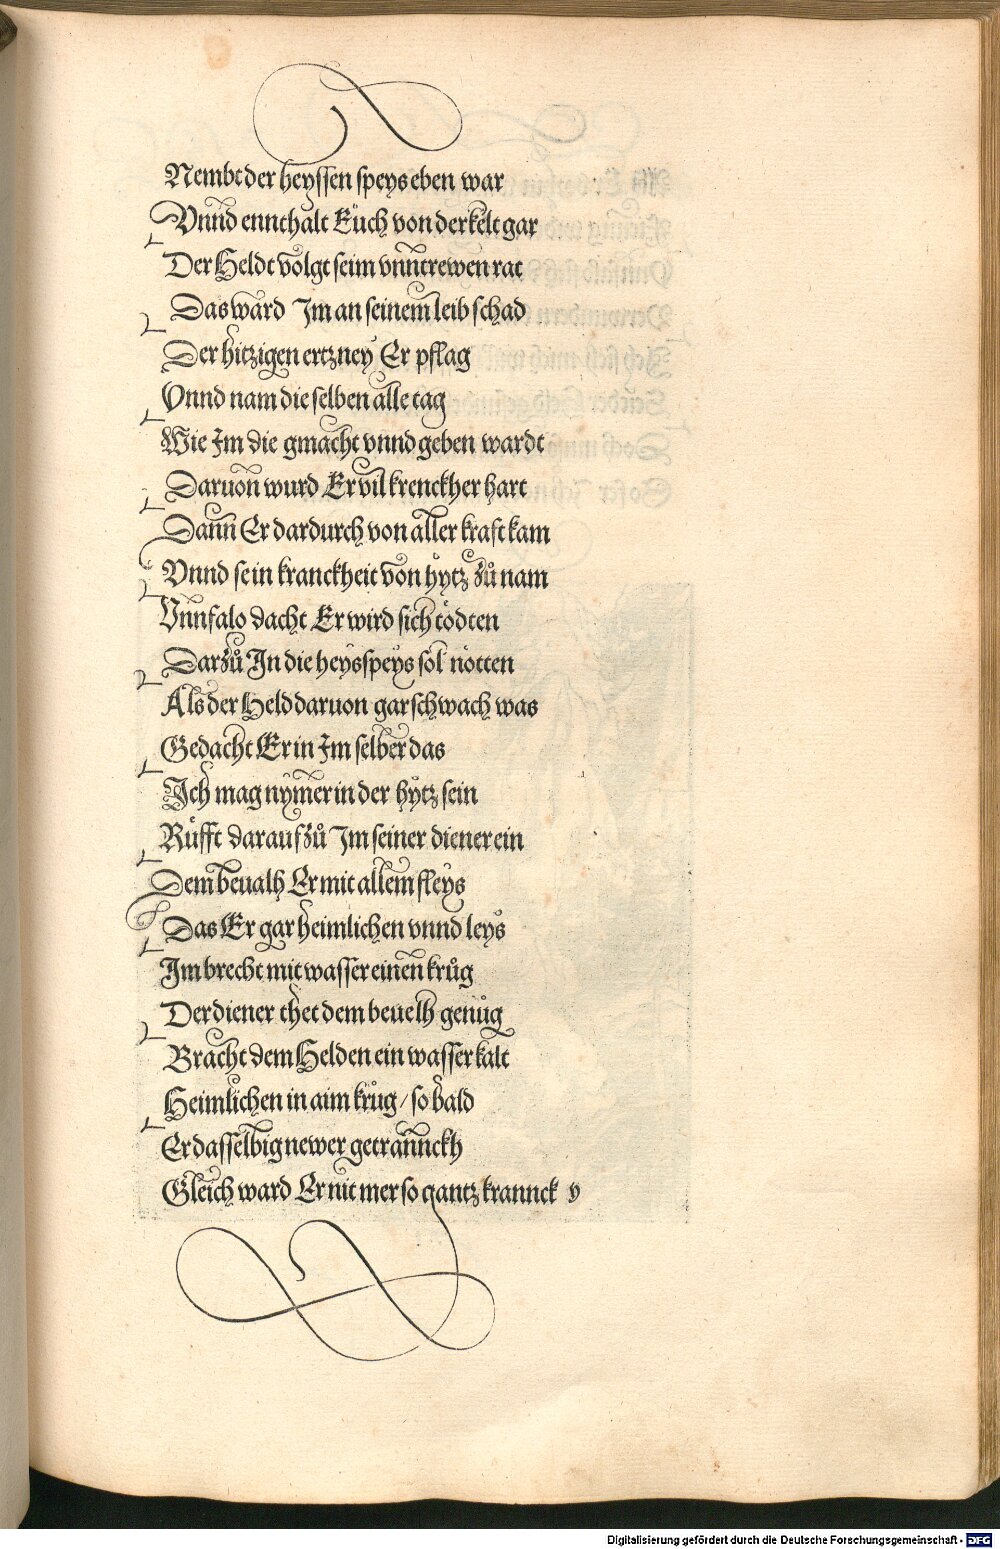 Nembt der heyssen speys eben war
Vnnd ennthalt Eüch von der kelt gar
Der Heldt volgt seim vnntrewen rat
Das ward Im an seinem leib schad
Der hitzigen ertzney Er pflag
Vnnd nam die selben alle tag
Wie Im die gmacht vnnd geben wardt
Daruon wurd Er vil krenckher hart
Dann Er dardurch von aller kraft kam
Vnnd sein kranckheit von hytz zů nam
Vnnfalo dacht Er wird sich tödten
Darzů In die heys speys sol nötten
Als der Held daruon gar schwach was
Gedacht Er in Im selber das
Ich mag nymer in der hytz sein
Rüfft darauf zů Im seiner diener ein
Dem beualh Er mit allem fleys
Das Er gar heimlichen vnnd leys
Im brecht mit wasser einen krůg
Der diener thet dem beuelh genůg
Bracht dem Helden ein wasser kalt
Heimlichen in aim krůg / so bald
Er dasselbig newer getrannckh
Gleich ward Er nit mer so gantz krannck
Digitalisierung gefördert durch die Deutsche Forschungsgemeinschaft - DFG